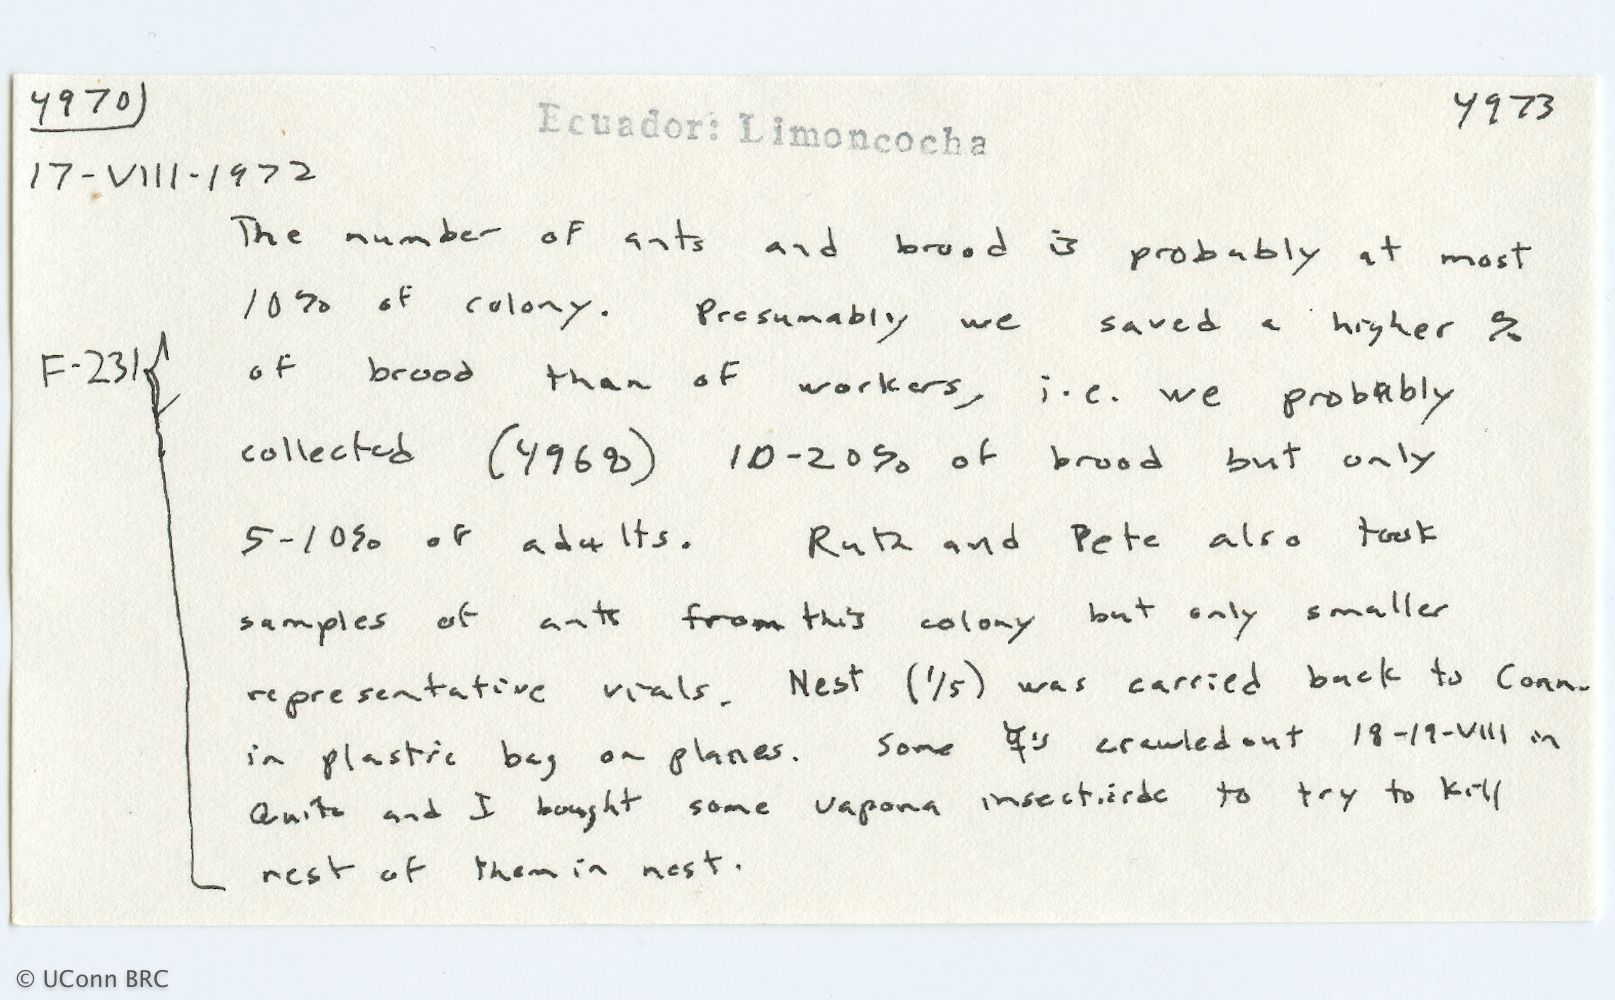 4970) Ecuador: Limoncocha 4973
17-VIII-1972
The number of ants and brood is probably at most
10% of colony. Presumably we saved a higher %
F-231 { of brood than of workers, i.e. we probably
collected (4968) 10-20% of brood but only
5-10% of adults. Ruth and Pete also took
samples of ants from this colony but only smaller
representative vials. Nest (1/5) was carried back to Conn.
in plastic bag on planes. Some ☿'s crawled out 18-19-VIII in
Quito and I bought some vapona insecticide to try to kill
rest of them in nest.
© UConn BRC